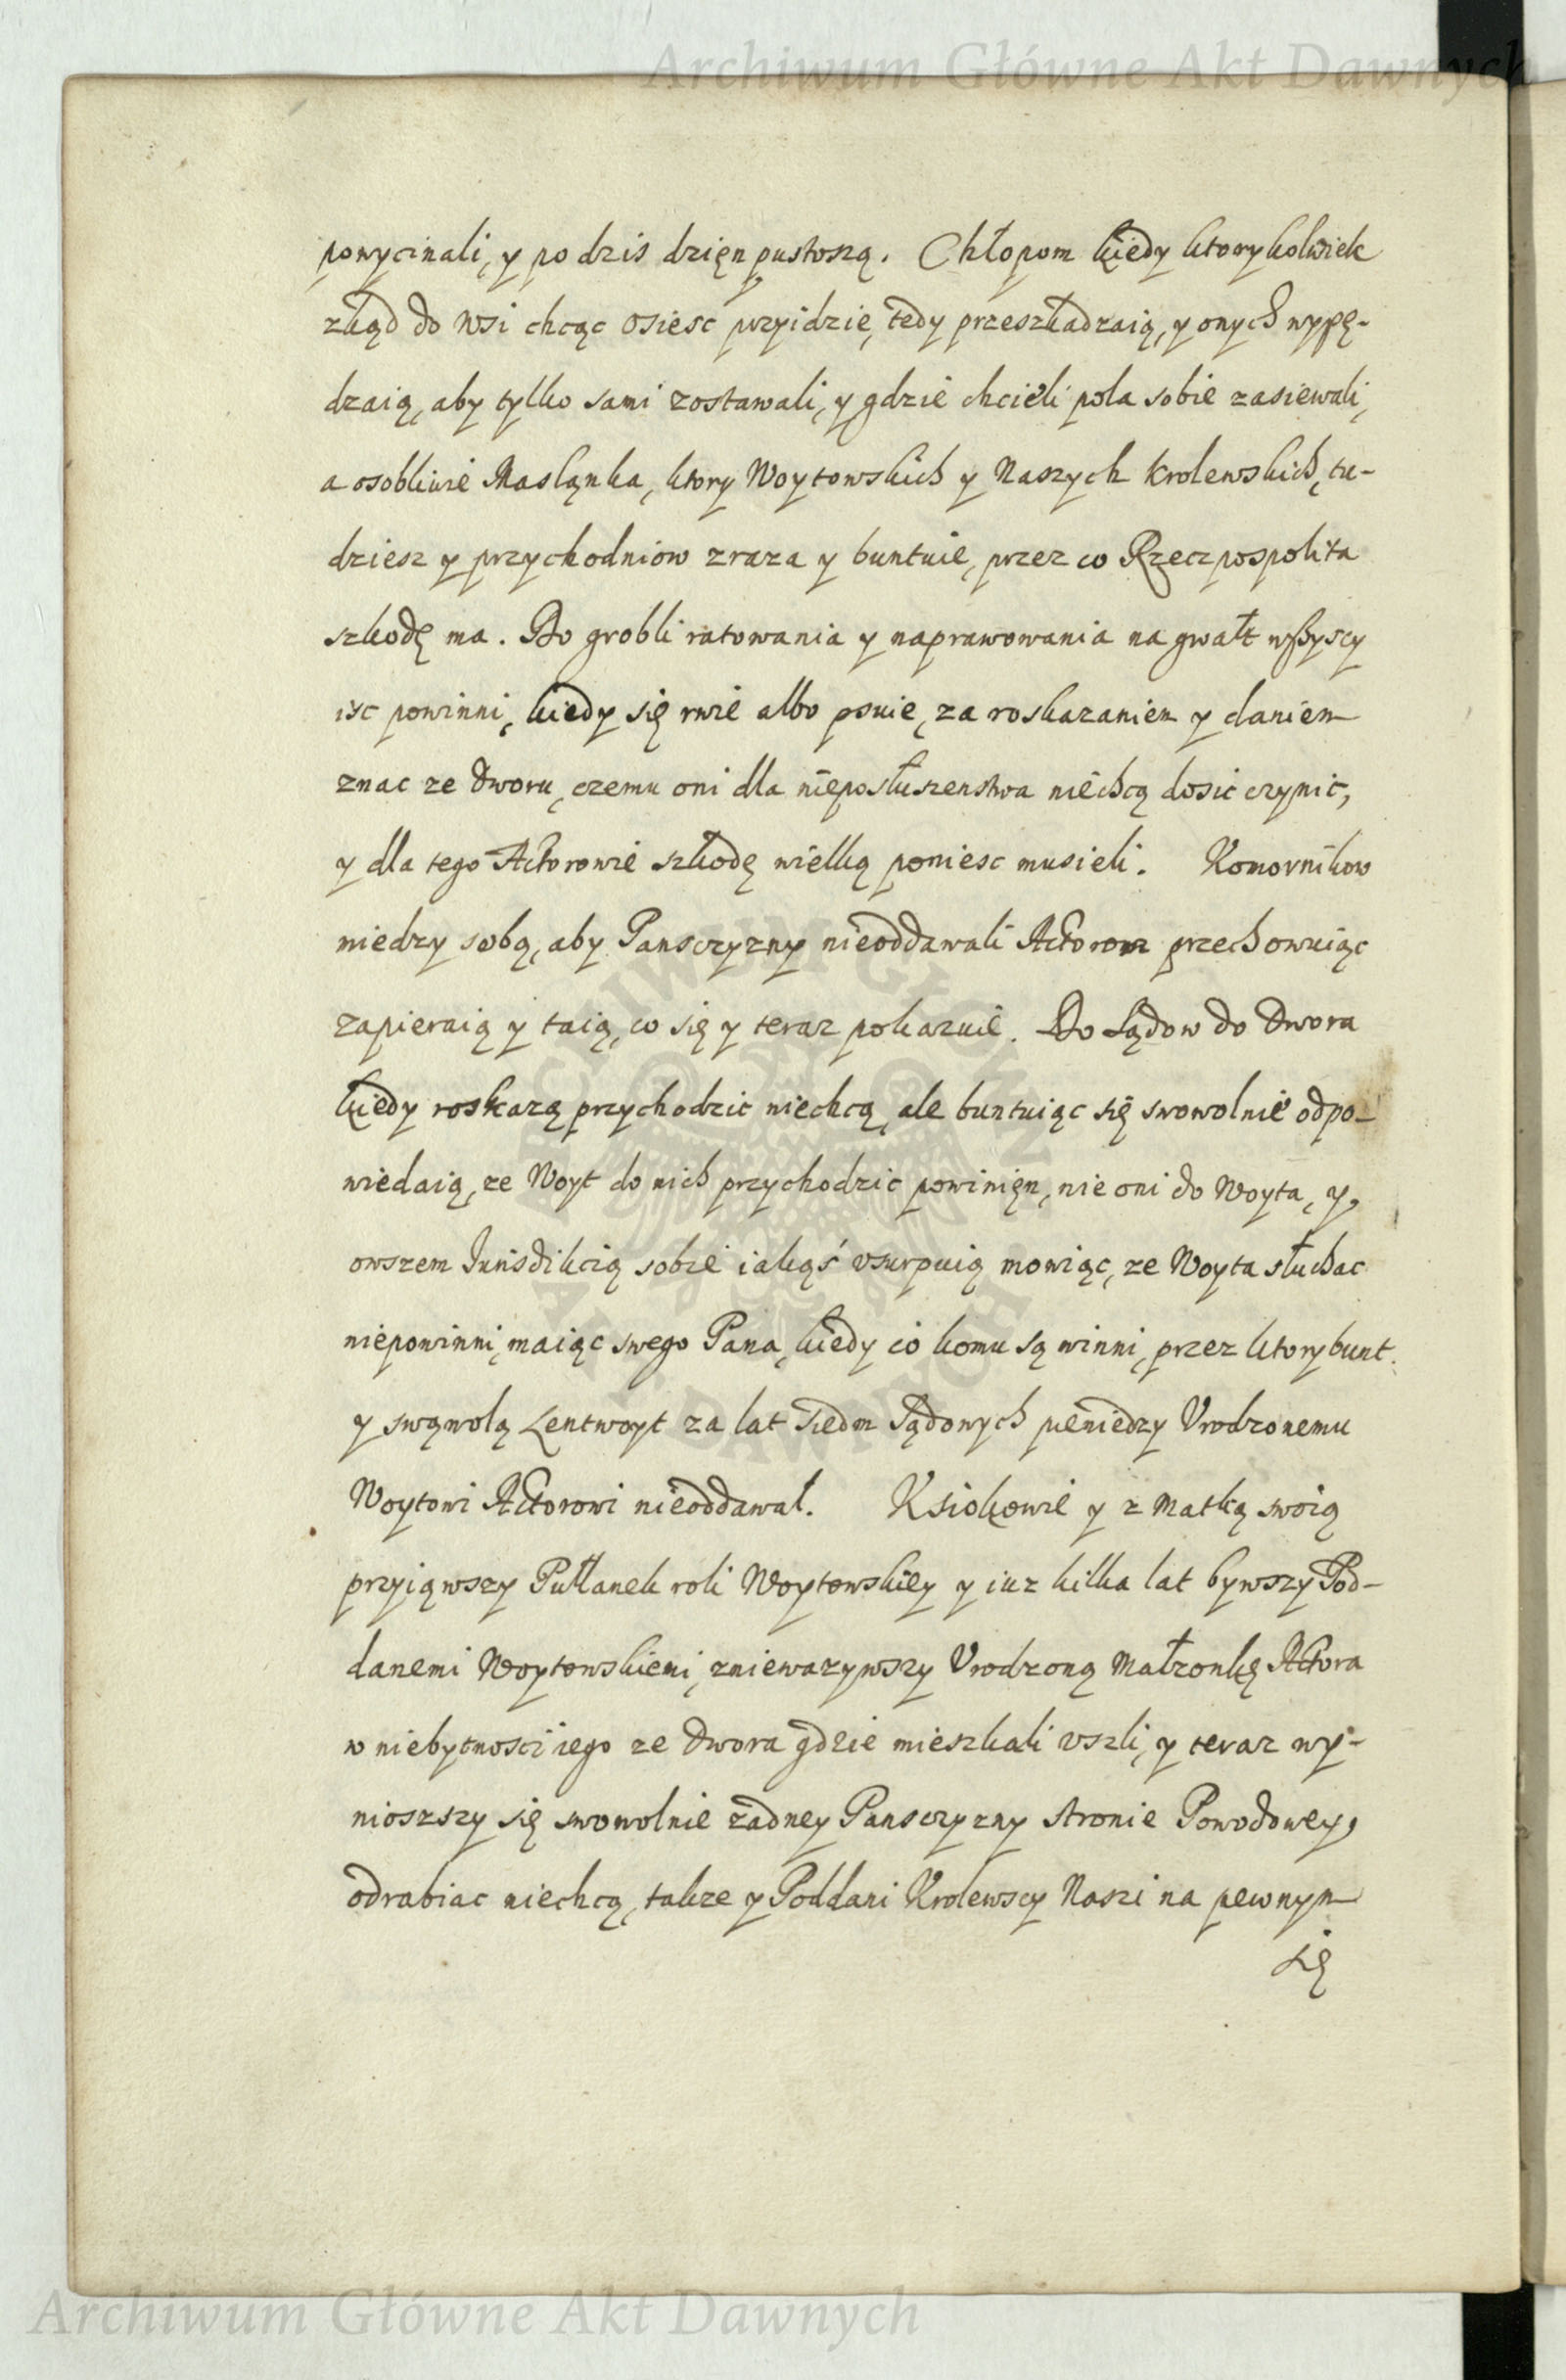 Archiwum Główne Akt Dawnych
powycinali, y po dzis dzięn pustoszą. Chłopom kiedy ktorykolwiek
zkąd do Wsi chcąc osiesc przyidzie, tedy przeszkadzaią, y onych wypę-
dzaią, aby tylko sami zostawali, y gdzie chcieli pola sobie zasiewali,
a osobliwie Masląnka, ktory Woytowskich y Naszych Krolewskich, tu-
dziesz y przychodniow zraza y buntuie, przez co Rzeczpospolita
szkodę ma. Do grobli ratowania y naprawowania na gwałt wszyscy
isc powinni, kiedy się rwie albo psuie, za roskazaniem y daniem
znac ze dworu, czemu oni dla nieposłuszenstwa niechcą dosic czynic,
y dla tego Actorowie szkodę wielką poniesc musieli. Komornikow
miedzy sobą, aby Pansczyzny nieoddawali Actorom przechowuiąc
zapieraią y taią, co się y teraz pokazuie. Do Sądow do dwora
kiedy roskazą przychodzic niechcą, ale buntuiąc się swowolnie odpo-
wiedaią, ze Woyt do nich przychodzic powinięn, nie oni do Woyta, y,
owszem Jurisdikcią sobie iakąś vsurpuią mowiąc, ze Woyta słuchac
niepowinni, maiąc swego Pana, kiedy co komu są winni, przez ktory bunt
y swąwolą Lentwoyt za lat siedm Sądowych pieniedzy Vrodzonemu
Woytowi Actorowi nieoddawal. Ksiokowie y z Matką swoią
przyiąwszy Pułłanek roli Woytowskiey y iuz kilka lat bywszy Pod-
danemi Woytowskiemi, zniewazywszy Vrodzoną Małzonkę Actora
w niebytnosci iego ze dwora gdzie mieszkali vszli, y teraz wy-
nioszszy się swowolnie zadney Pansczyzny stronie Powodowey,
odrabiac niechcą, takze y Poddani Krolewscy Naszi na pewnym
się
Archiwum Główne Akt Dawnych